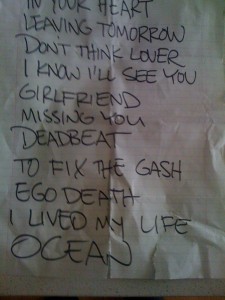 IN YOUR HEART
LEAVING TOMORROW
DONT THINK LOVER
I KNOW I'LL SEE YOU
GIRLFRIEND
MISSING YOU
DEADBEAT
TO FIX THE GASH
EGO DEATH
I LIVED MY LIFE
OCEAN